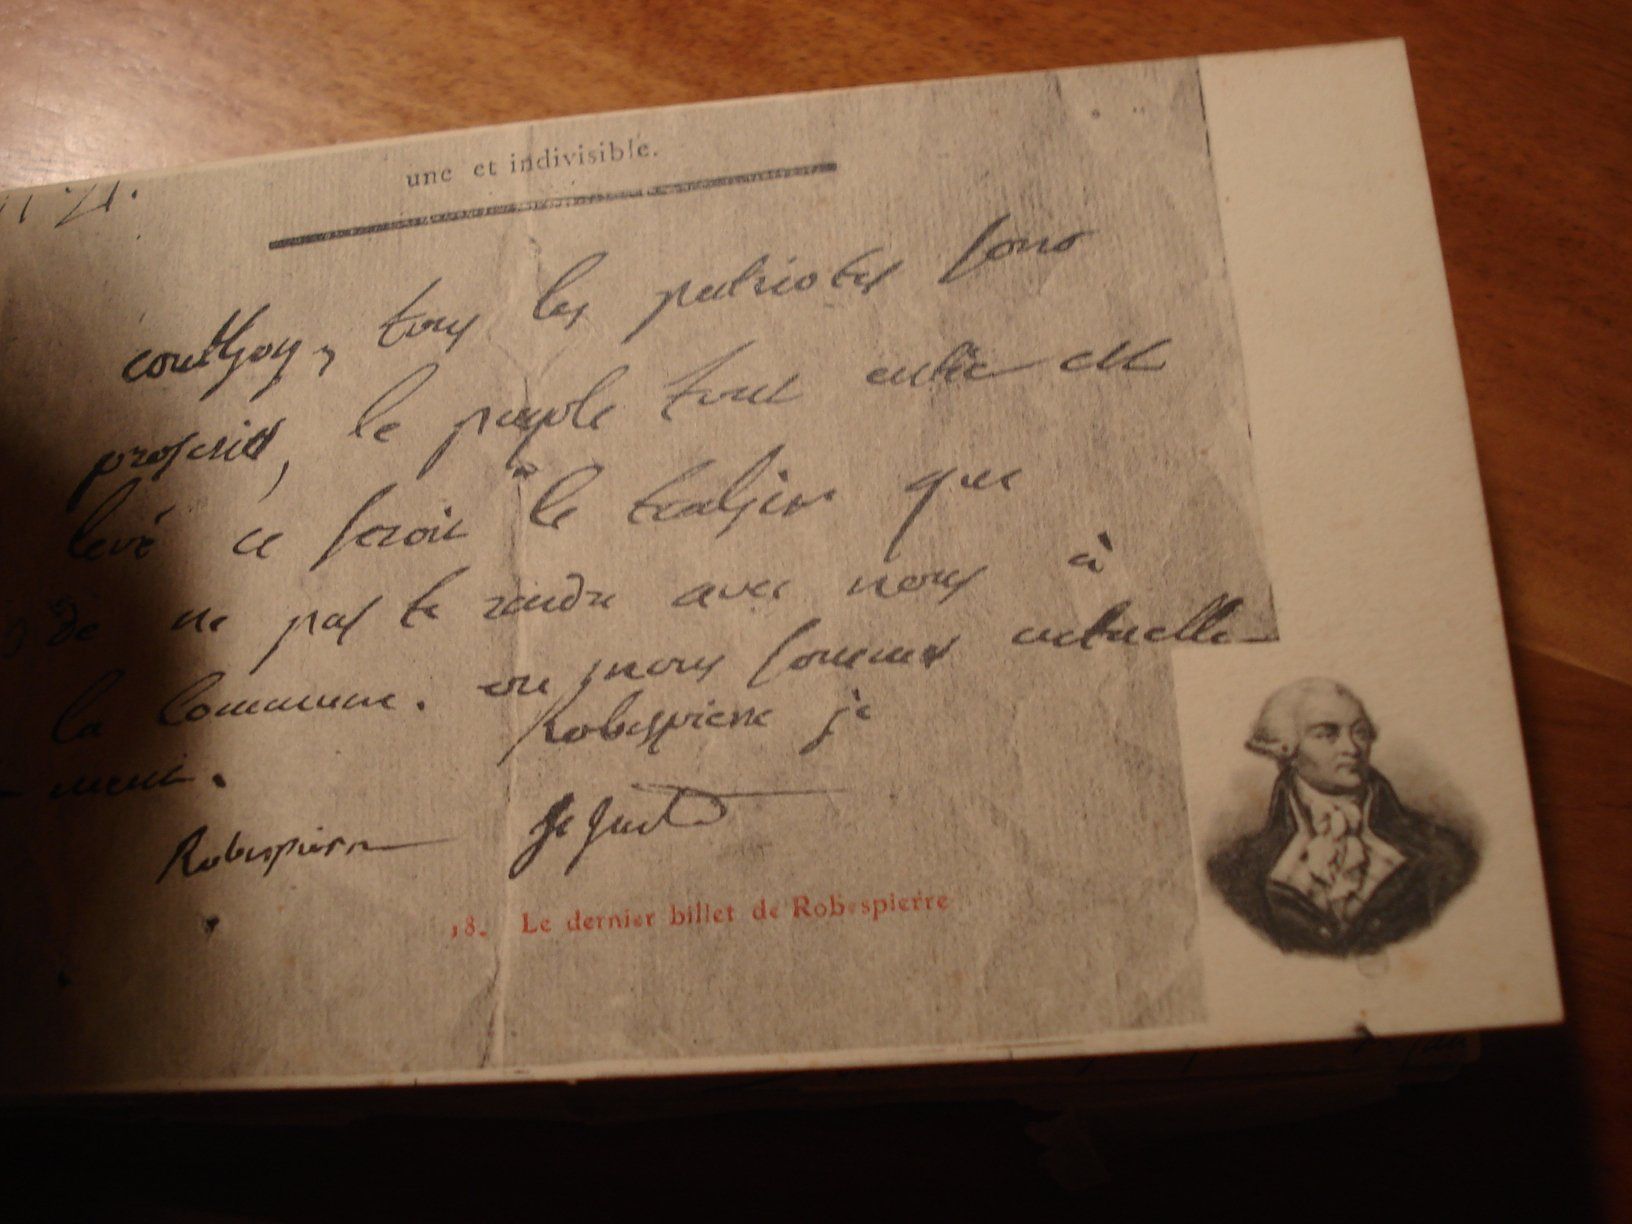 une et indivisible.
couthon, tous les patriotes sont
proscrits, le peuple tout entier est
levé ce seroit le trahir que
de ne pas te rendre avec nous à
la Commune. ou nous sommes actuelle-
-ment.
Robespierre je
Robespierre St Just
18. Le dernier billet de Robespierre